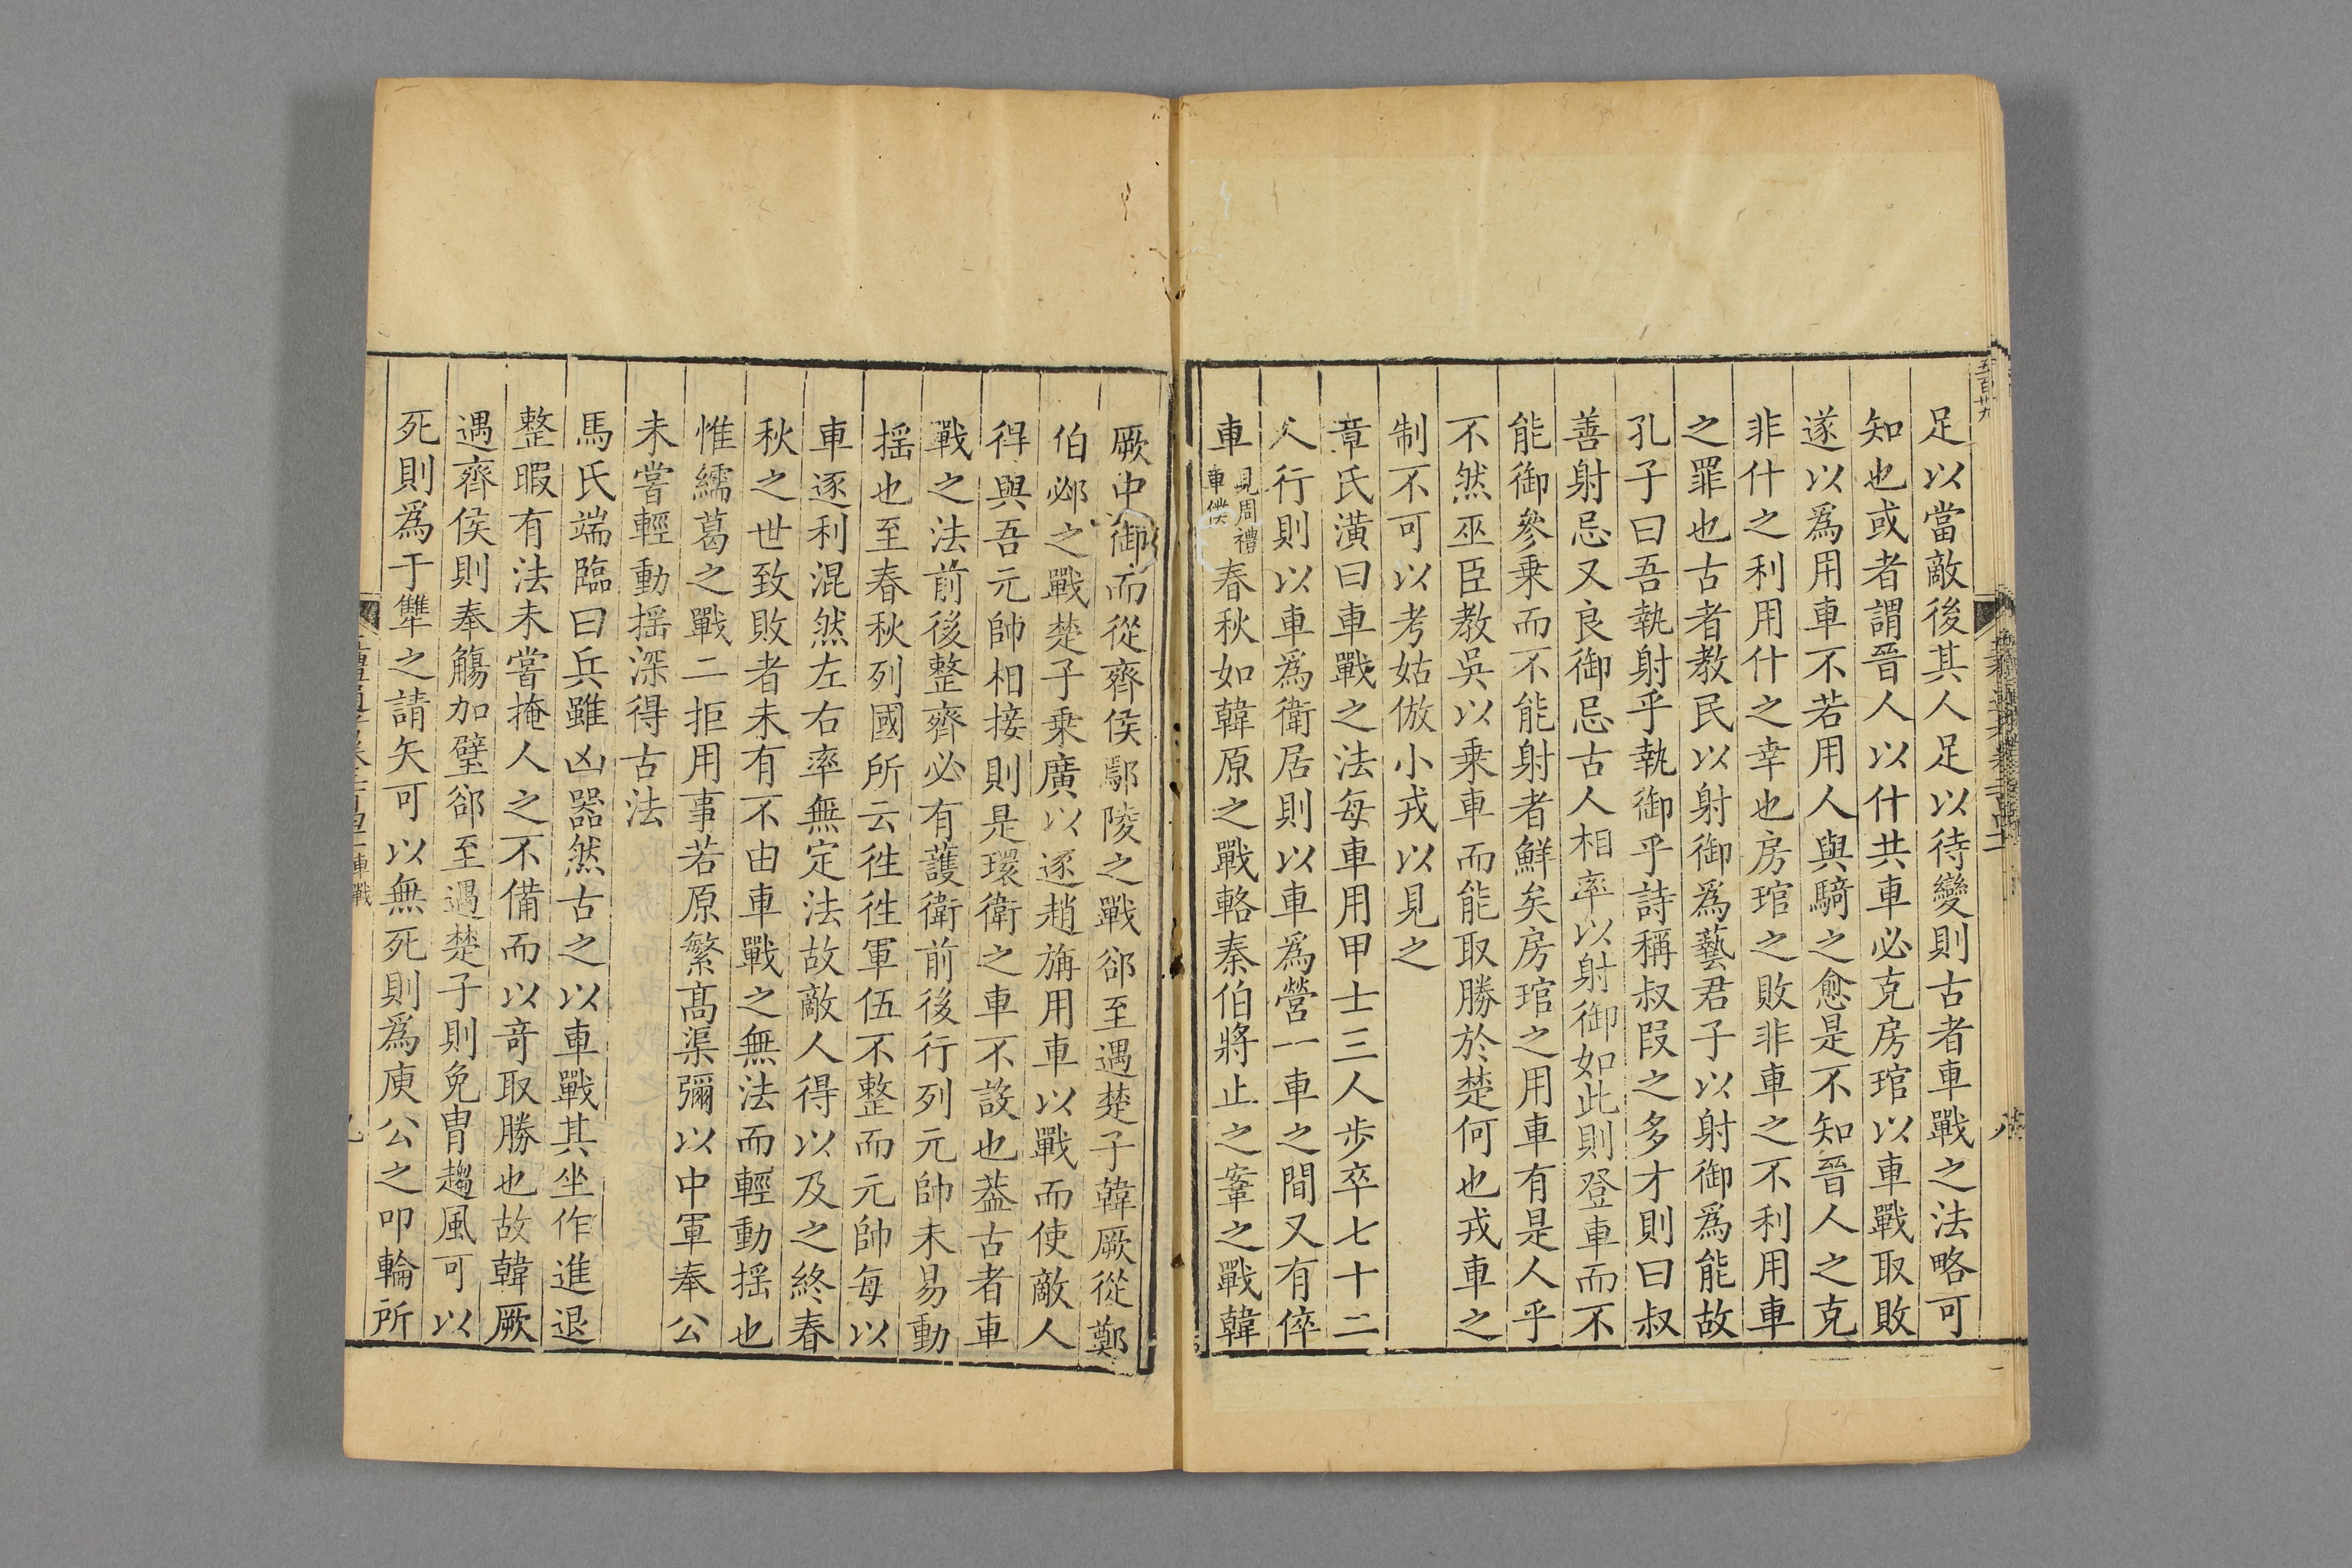 五百廿九
足以當敵後其人足以待變則古者車戰之法略可
知也或者謂晉人以什共車必克房琯以車戰取敗
遂以爲用車不若用人與騎之愈是不知晉人之克
非什之利用什之幸也房琯之敗非車之不利用車
之罪也古者教民以射御爲藝君子以射御爲能故
孔子曰吾執射乎執御乎詩稱叔叚之多才則曰叔
善射忌又良御忌古人相率以射御如此則登車而不
能御參乗而不能射者鮮矣房琯之用車有是人乎
不然巫臣教吳以乗車而能取勝於楚何也戎車之
制不可以考姑倣小戎以見之
章氏潢曰車戰之法每車用甲士三人步卒七十二
人行則以車爲衛居則以車爲營一車之間又有倅
車見周禮車僕春秋如韓原之戰輅秦伯將止之鞌之戰韓
厥中御而從齊侯鄢陵之戰郤至遇楚子韓厥從鄭
伯邲之戰楚子乗廣以逐趙旃用車以戰而使敵人
得與吾元帥相接則是環衛之車不設也葢古者車
戰之法前後整齊必有護衛前後行列元帥未易動
揺也至春秋列國所云徃徃軍伍不整而元帥每以
車逐利混然左右率無定法故敵人得以及之終春
秋之世致敗者未有不由車戰之無法而輕動揺也
惟繻葛之戰二拒用事若原繁髙渠彌以中軍奉公
未嘗輕動揺深得古法
馬氏端臨曰兵雖凶器然古之以車戰其坐作進退
整暇有法未嘗掩人之不備而以竒取勝也故韓厥
遇齊侯則奉觴加璧郤至遇楚子則免胄趨風可以
死則爲于犫之請矢可以無死則爲庾公之叩輪所
車戰